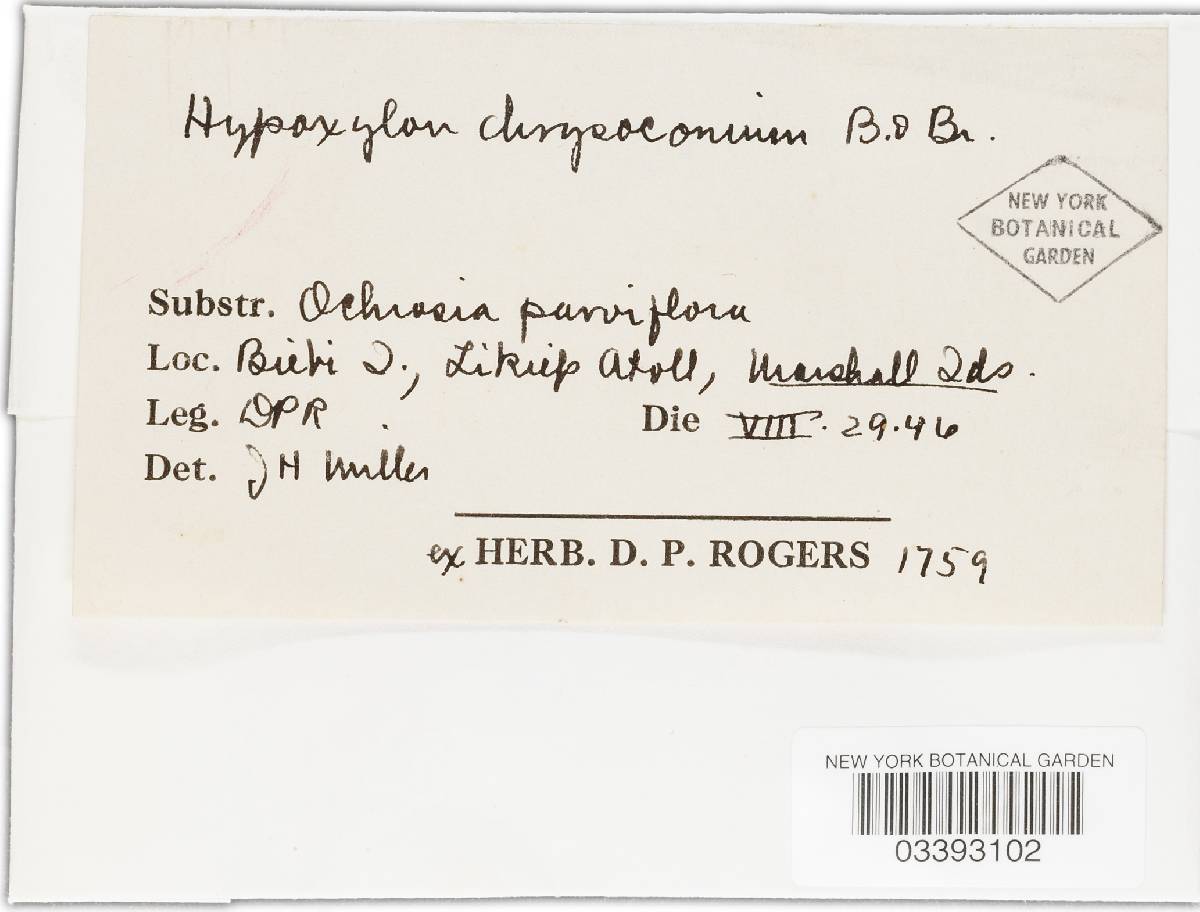 Hypoxylon chrysoconium B. & Br.
NEW YORK
BOTANICAL
GARDEN
Substr. Ochrosia parviflora
Loc. Biebi I., Likiep Atoll, Marshall Ids.
Leg. DPR
Die VIII. 29.46
Det. J H Miller
ex HERB. D. P. ROGERS 1759
NEW YORK BOTANICAL GARDEN
03393102